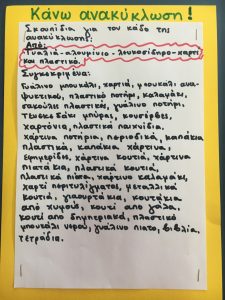 Κάνω ανακύκλωση!
Σκουπίδια για τον κάδο της
ανακύκλωσης!
Από:
Γυαλιά-αλουμίνιο-λευκοσίδηρο-χαρτί
και πλαστικό.
Συγκεκριμένα:
Γυάλινο μπουκάλι, χαρτιά, μπουκάλι ανα-
ψυκτικού, πλαστικό ποτήρι, καλαμάκι,
σακούλες πλαστικές, γυάλινο ποτήρι,
Τενεκεδάκι μπύρας, κονσέρβες,
χαρτόνια, πλαστικά παιχνίδια.
χάρτινα ποτήρια, περιοδικά, καπάκια
πλαστικά, καπάκια χάρτινα.
εφημερίδες, χάρτινα κουτιά, χάρτινα
πιατάκια, πλαστικά κουτιά,
πλαστικά πιάτα, χάρτινο καλαμάκι,
χαρτί περιτυλίγματος, μεταλλικά
κουτιά, γιαουρτάκια, κουτάκια
από χυμούς, κουτί από γάλα,
κουτί από δημητριακά, πλαστικό
μπουκάλι νερού, γυάλινο πιάτο, βιβλία,
τετράδια.